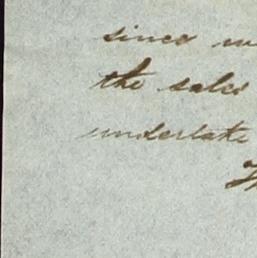 since
the sales
undertake